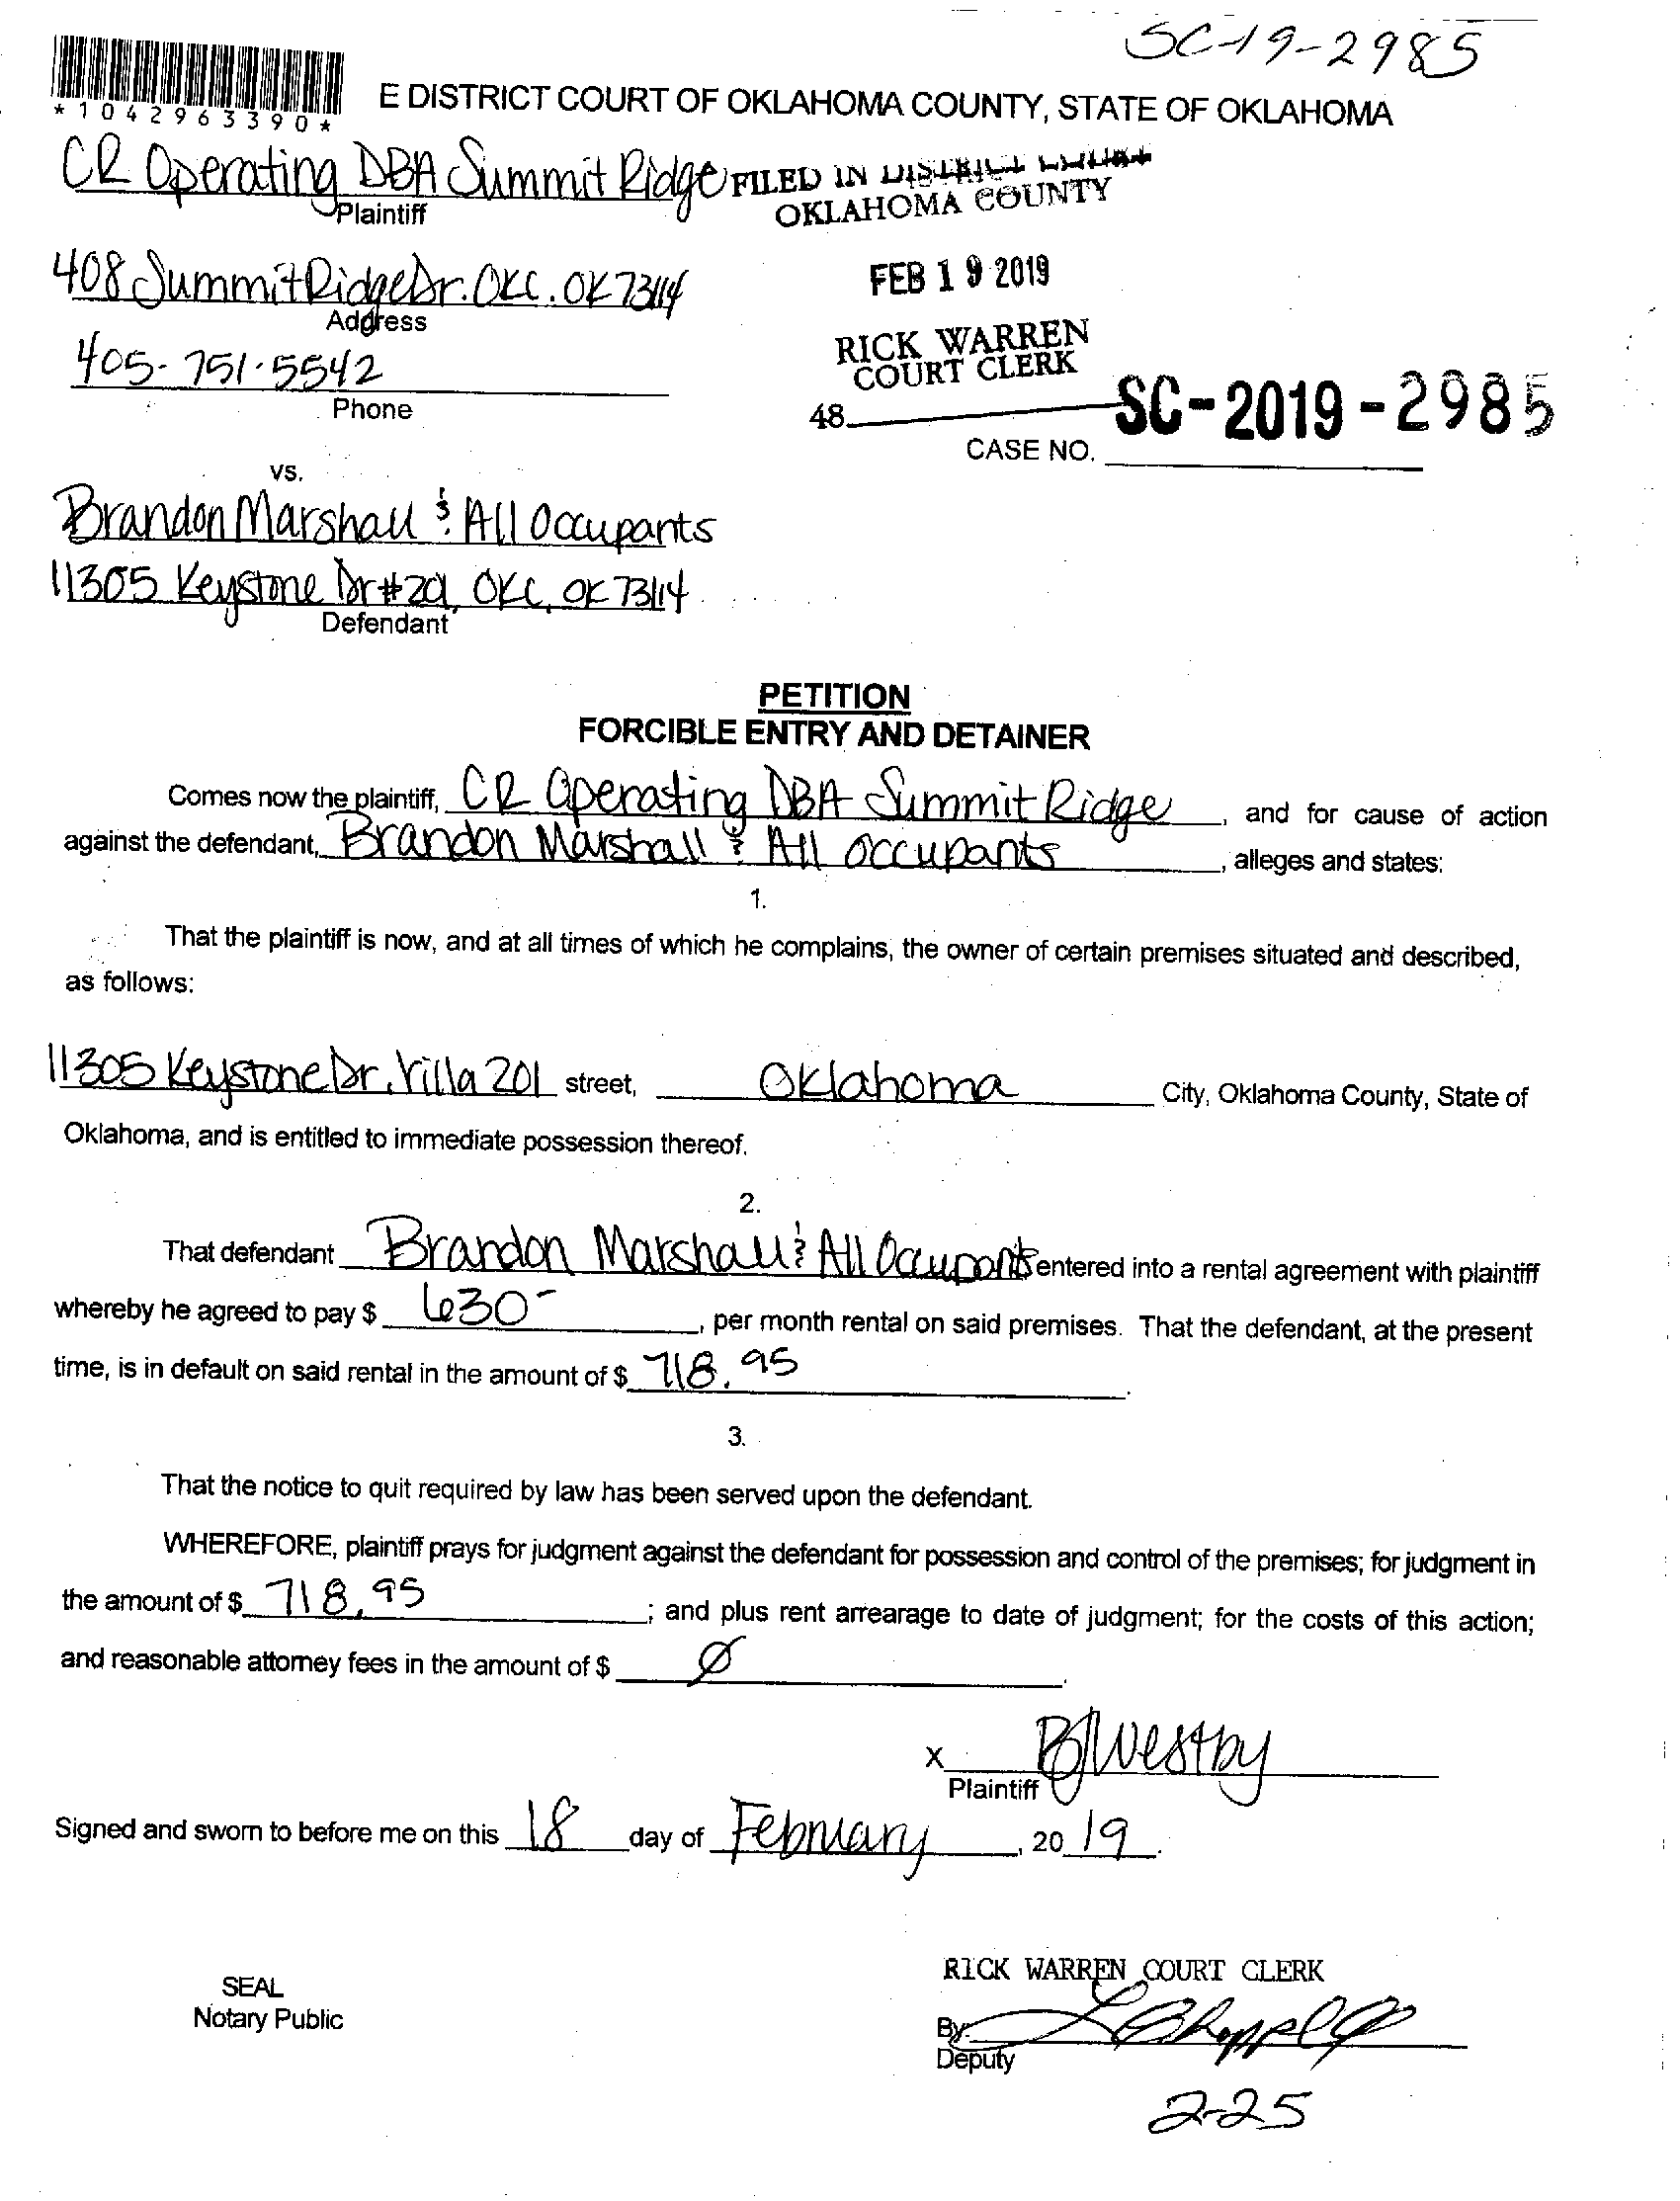 SC-19-2985
*1042963390*
E DISTRICT COURT OF OKLAHOMA COUNTY, STATE OF OKLAHOMA
CR Operating DBA Summit Ridge
Plaintiff
FILED IN DISTRICT COURT
OKLAHOMA COUNTY
408 Summit Ridge Dr. OKC. OK 73114
Address
FEB 19 2019
405-751-5542
Phone
RICK WARREN
COURT CLERK
48
SC-2019-2985
CASE NO.
vs.
Brandon Marshall & All Occupants
11305 Keystone Dr #201, OKC, OK 73114
Defendant
PETITION
FORCIBLE ENTRY AND DETAINER
Comes now the plaintiff, CR Operating DBA Summit Ridge, and for cause of action
against the defendant, Brandon Marshall & All Occupants, alleges and states:
1.
That the plaintiff is now, and at all times of which he complains, the owner of certain premises situated and described,
as follows:
11305 Keystone Dr. Villa 201 street, Oklahoma City, Oklahoma County, State of
Oklahoma, and is entitled to immediate possession thereof.
2.
That defendant Brandon Marshall & All Occupants entered into a rental agreement with plaintiff
whereby he agreed to pay $ 630-, per month rental on said premises. That the defendant, at the present
time, is in default on said rental in the amount of $ 718.95.
3.
That the notice to quit required by law has been served upon the defendant.
WHEREFORE, plaintiff prays for judgment against the defendant for possession and control of the premises; for judgment in
the amount of $ 718.95; and plus rent arrearage to date of judgment; for the costs of this action;
and reasonable attorney fees in the amount of $ Ø.
x BJWestby
Plaintiff
Signed and sworn to before me on this 18 day of February, 2019.
SEAL
Notary Public
RICK WARREN COURT CLERK
By:
Deputy
2-25